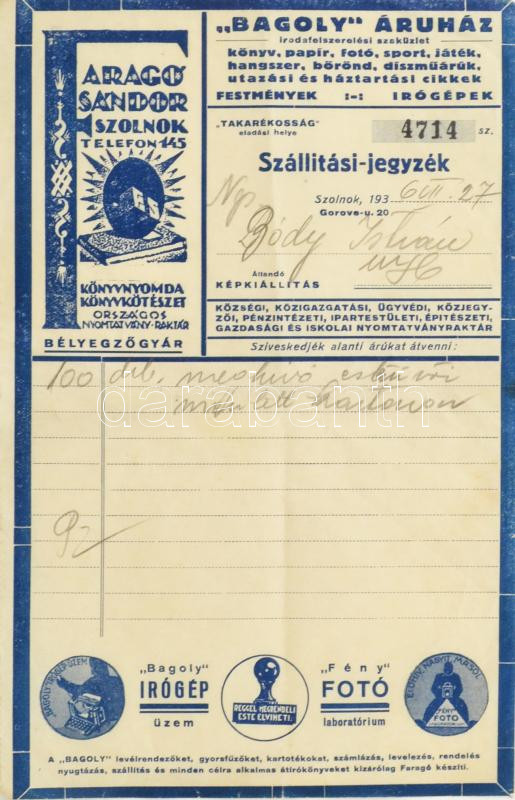 FARAGÓ
SÁNDOR
SZOLNOK
TELEFON 145
KÖNYVNYOMDA
KÖNYVKÖTÉSZET
ORSZÁGOS
NYOMTATVÁNY-RAKTÁR
BÉLYEGZŐGYÁR
„BAGOLY" ÁRUHÁZ
irodafelszerelési szaküzlet
könyv, papír, fotó, sport, játék,
hangszer, bőrönd, díszműárúk,
utazási és háztartási cikkek
FESTMÉNYEK :-: IRÓGÉPEK
„TAKARÉKOSSÁG"
eladási helye
4714 sz.
Szállitási-jegyzék
Szolnok, 1936 III. 27
Gorove-u. 20
Ngs.
Bódy István
Állandó
KÉPKIÁLLÍTÁS
KÖZSÉGI, KÖZIGAZGATÁSI, ÜGYVÉDI, KÖZJEGY-
ZŐI, PÉNZINTÉZETI, IPARTESTÜLETI, ÉPITÉSZETI,
GAZDASÁGI ÉS ISKOLAI NYOMTATVÁNYRAKTÁR
Sziveskedjék alanti árúkat átvenni:
100 drb. meghívó esküvői
kartonon
darabanth
BAGOLY IRÓGÉP ÜZEM
„Bagoly"
IRÓGÉP
üzem
REGGEL MEGRENDELI
ESTE ELVIHETI.
„Fény"
FOTÓ
laboratórium
NAGYIT, MÁSOL
„FÉNY"
FOTÓ
LABORATORIUM
A „BAGOLY" levélrendezőket, gyorsfűzőket, kartotékokat, számlázás, levelezés, rendelés
nyugtázás, szállítás és minden célra alkalmas átírókönyveket kizárólag Faragó készíti.